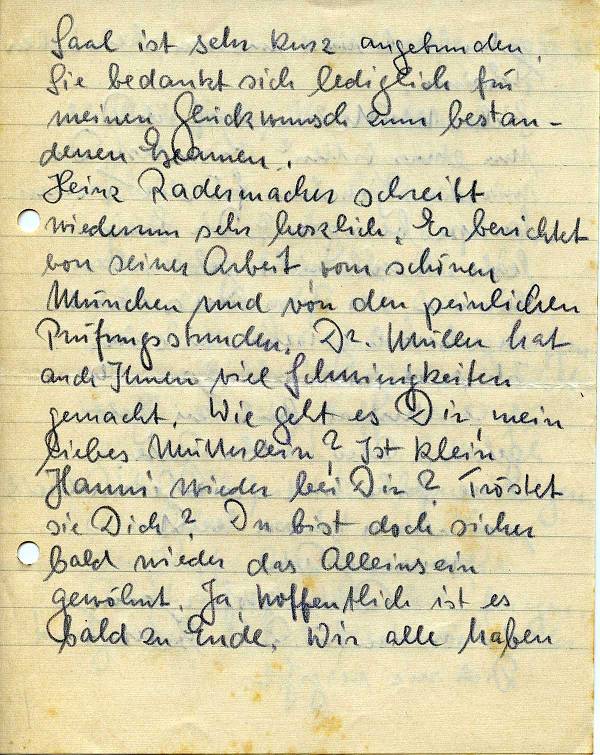 Saal ist sehr kurz angebunden.
Sie bedankt sich lediglich für
meinen Glückwunsch zum bestan-
denen Examen.
Heinz Radermacher schreibt
wiederum sehr herzlich. Er berichtet
von seiner Arbeit vom schönen
München und von den peinlichen
Prüfungsstunden. Dr. Müller hat
auch Ihnen viel Schwierigkeiten
gemacht. Wie geht es Dir, mein
liebes Mütterlein? Ist klein
Hanni wieder bei Dir? Tröstet
sie Dich? Du bist doch sicher
bald wieder das Alleinsein
gewöhnt. Ja, hoffentlich ist es
bald zu Ende. Wir alle haben